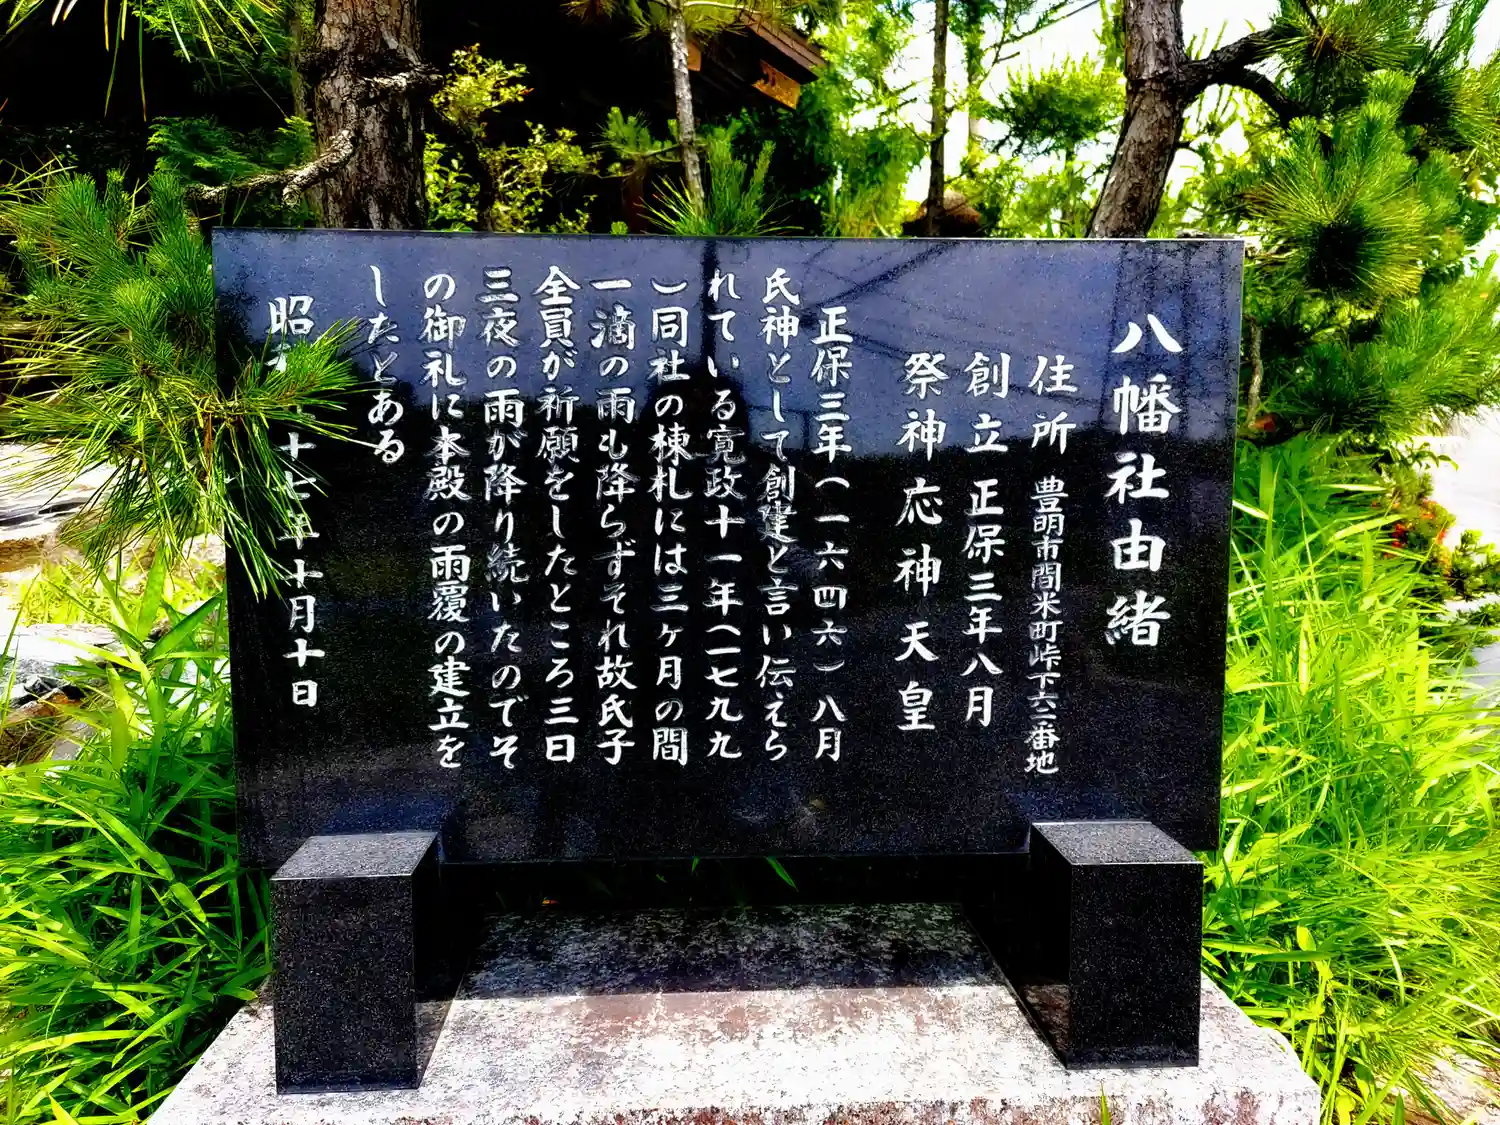 八幡社由緒
住所 豊明市間米町峠下六一番地
創立 正保三年八月
祭神 応神天皇
正保三年(一六四六)八月
氏神として創建と言い伝えら
れている寛政十一年(一七九九
)同社の棟札には三ヶ月の間
一滴の雨も降らずそれ故氏子
全員が祈願をしたところ三日
三夜の雨が降り続いたのでそ
の御礼に本殿の雨覆の建立を
したとある
昭 十七年十月十日